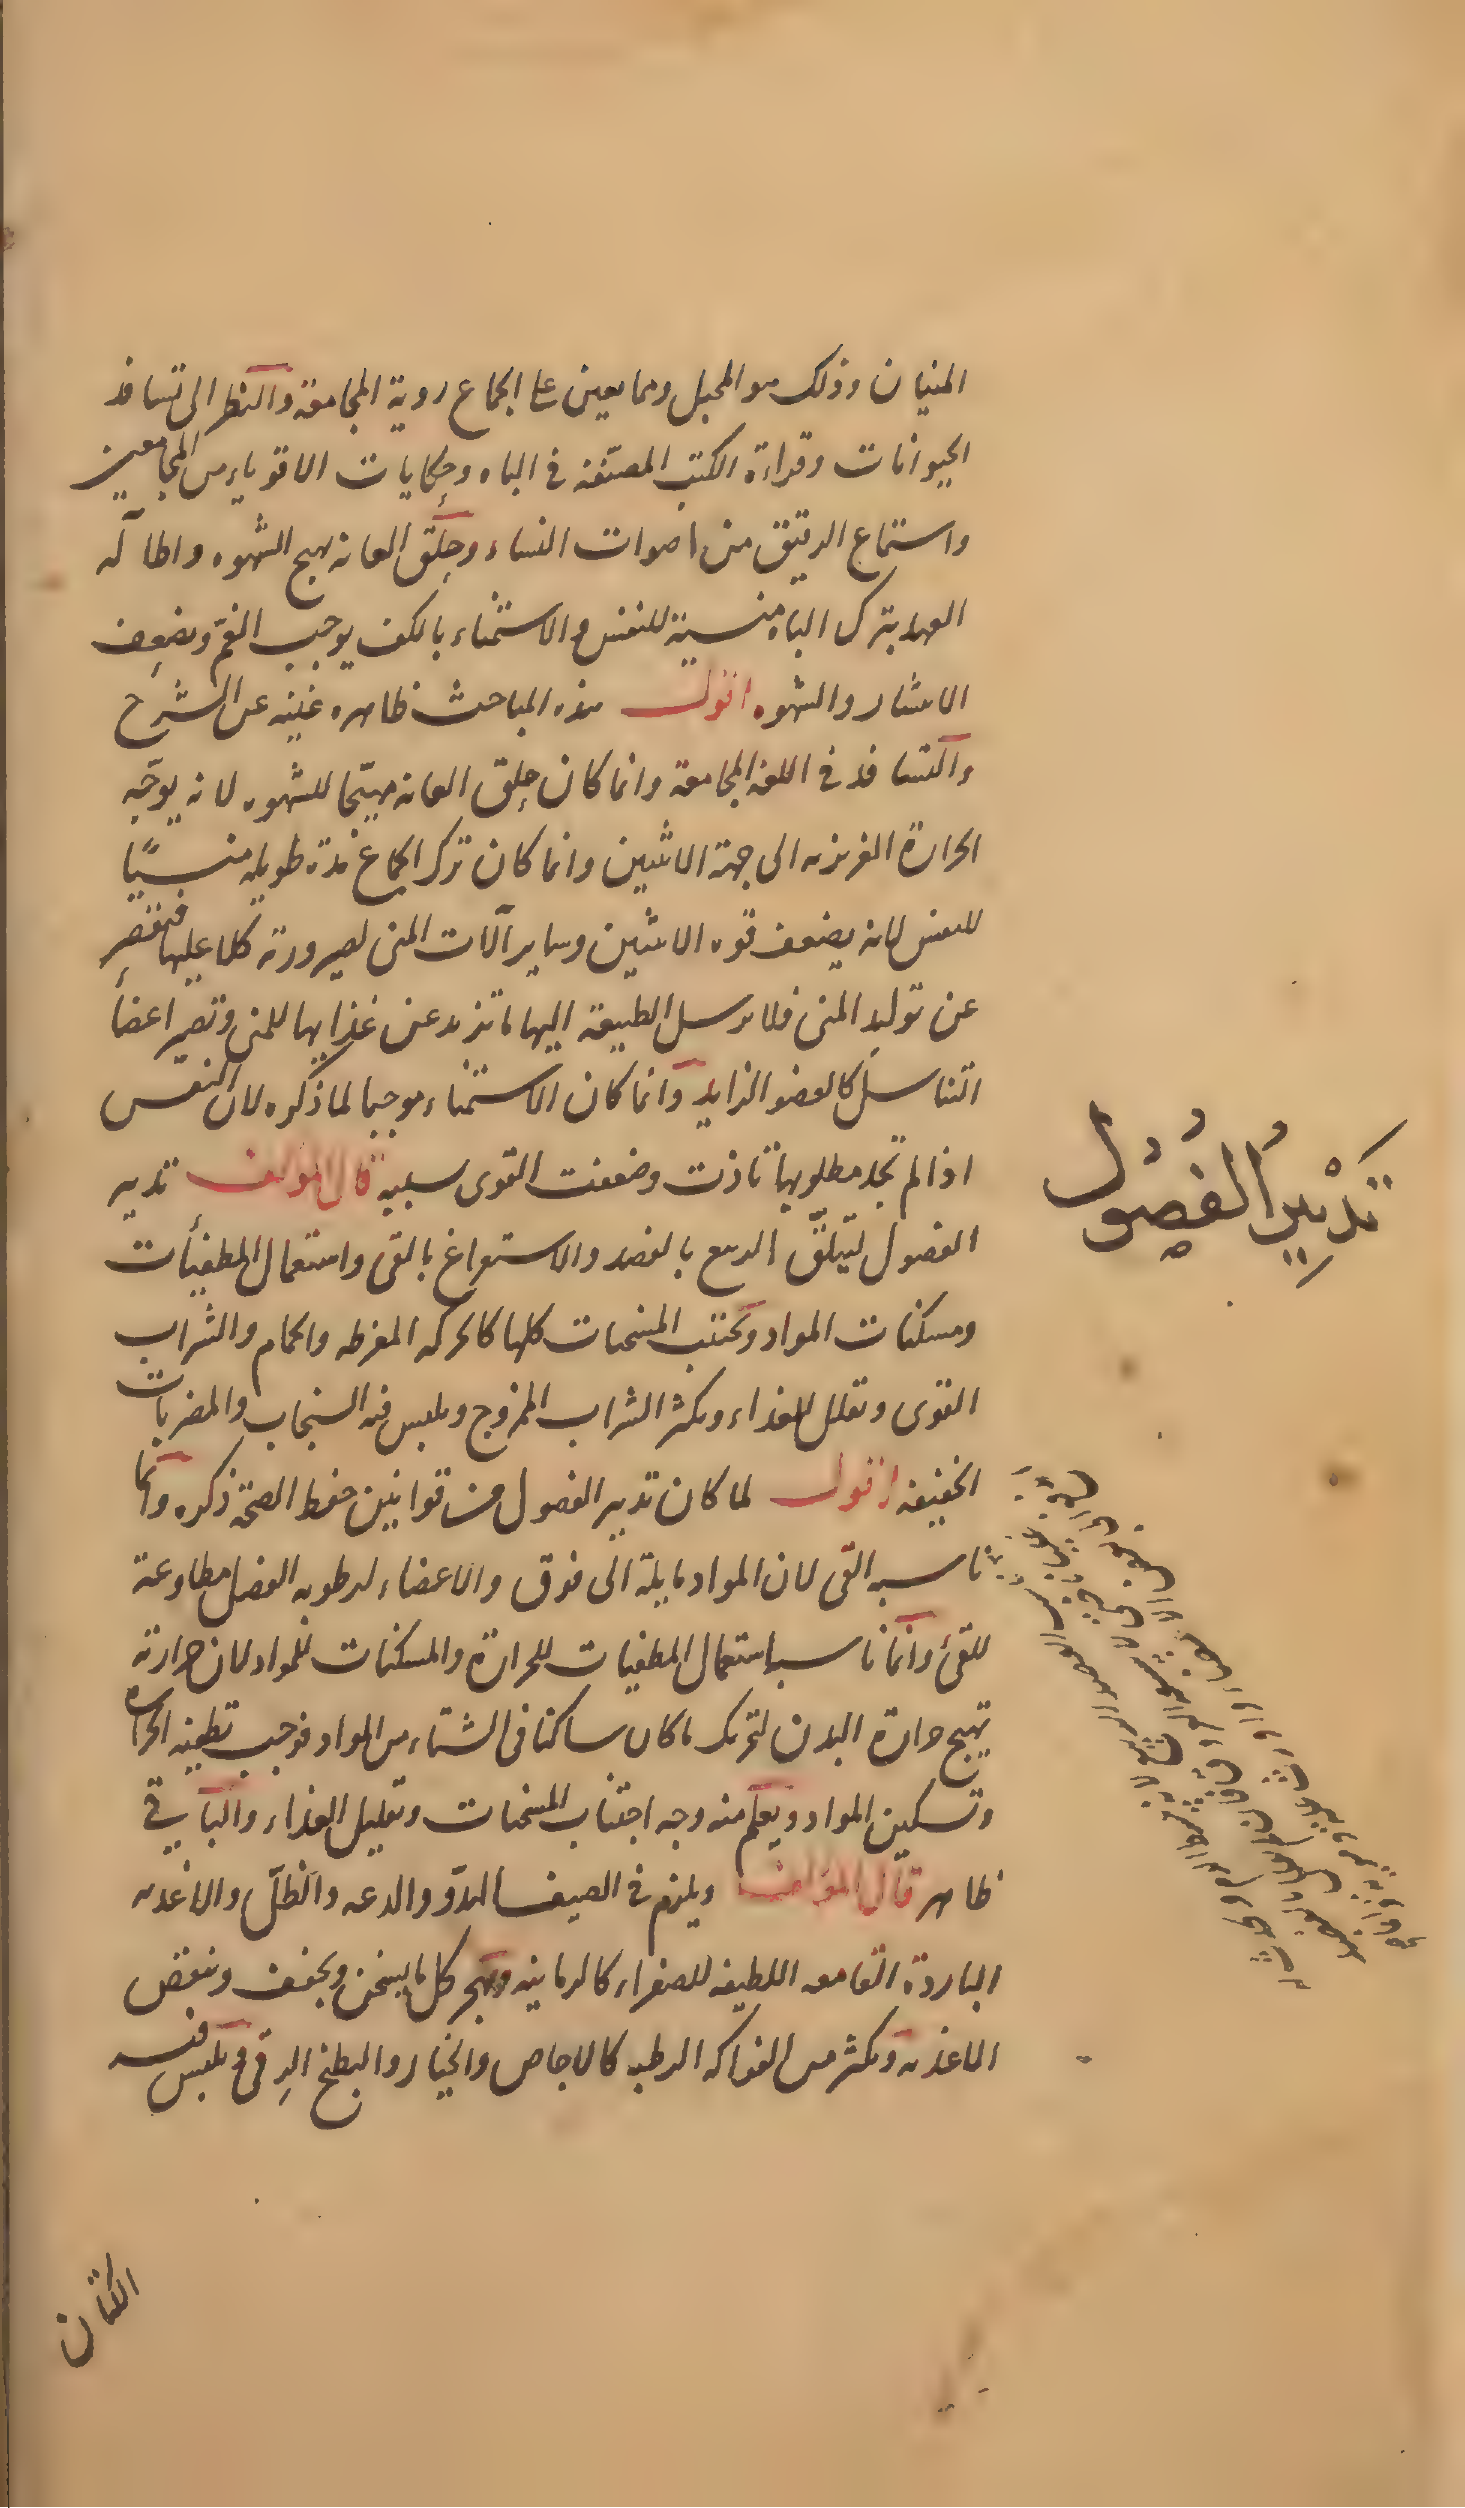 المنيان وذلك هو المحبل ومما يعين على الجماع روية المجامعة والنظر الى تسافد
الحيوانات وقراءة الكتب المصنّفة فى الباه وحكايات الاقوياء من المجامعين
واستماع الرقيق من اصوات النساء وحلق العانه يهيج الشهوه واطالة
العهد بترك الباه منسية للنفس والاستمناء بالكف يوجب الغمّ ويضعف
الانتشار والشهوه اقول هذه المباحث ظاهره غنيه عن الشرح
والتسافد فى اللغة المجامعة وانما كان حلق العانه مهيّجا للشهوه لانه يوجّه
الحرارة الغريزيه الى جهة الانثيين وانما كان ترك الجماع مدة طويله منسيًا
للنفس لانه يضعف قوه الانثيين وساير آلات المنى لصيرورته كلا عليها فتقصر
عن توليد المنى فلا يرسل الطبيعة اليها ما تزيد عن غذايها للمنى وتصير اعضأ
التناسل كالعضو الزايد وانما كان الاستمناء موجبا لما ذكره لان النفس
اذا لم تجد مطلوبها تاذت وضعفت القوى بسببه قال المؤلف تدبير
الفصول ليتلقّ الربيع بالفصد والاستفراغ بالقى واستعمال المطفيأت
ومسكنات المواد وتجتنب المسخنات كلها كالحركه المفرطه والحمام والشراب
القوى وتقلل الغذاء ويكثر الشراب الممزوج ويلبس فيه السنجاب والمضربات
الخفيفه اقول لما كان تدبير الفصول من قوانين حفظ الصحّة ذكره وانما
ناسبه القى لان المواد مايلة الى فوق والاعضاء لرطوبه الفصل مطاوعة
للقئ وانما ناسب استعمال المطفيات للحرارة والمسكنات للمواد لان حرارته
تهيج حرارة البدن لتحريك ما كان ساكنا فى الشتاء من المواد فوجب تطفيه الحراره
وتسكين المواد ويعلم منه وجه اجتناب المسخنات وتقليل الغذاء والباقي
ظاهر قال المؤلف ويلزم فى الصيف الهدوّ والدعه والظلّ والاغذيه
الباردة القامعه اللطيفه للصفراء كالرمانيه ويهجر كل ما يسخن ويجفف وينقص
الاغذيه ويكثر من الفواكه الرطبه كالاجاص والخيار والبطيخ الرقى ويلبس فيه
تَدْبِيرُ الفُصُول
الكتان